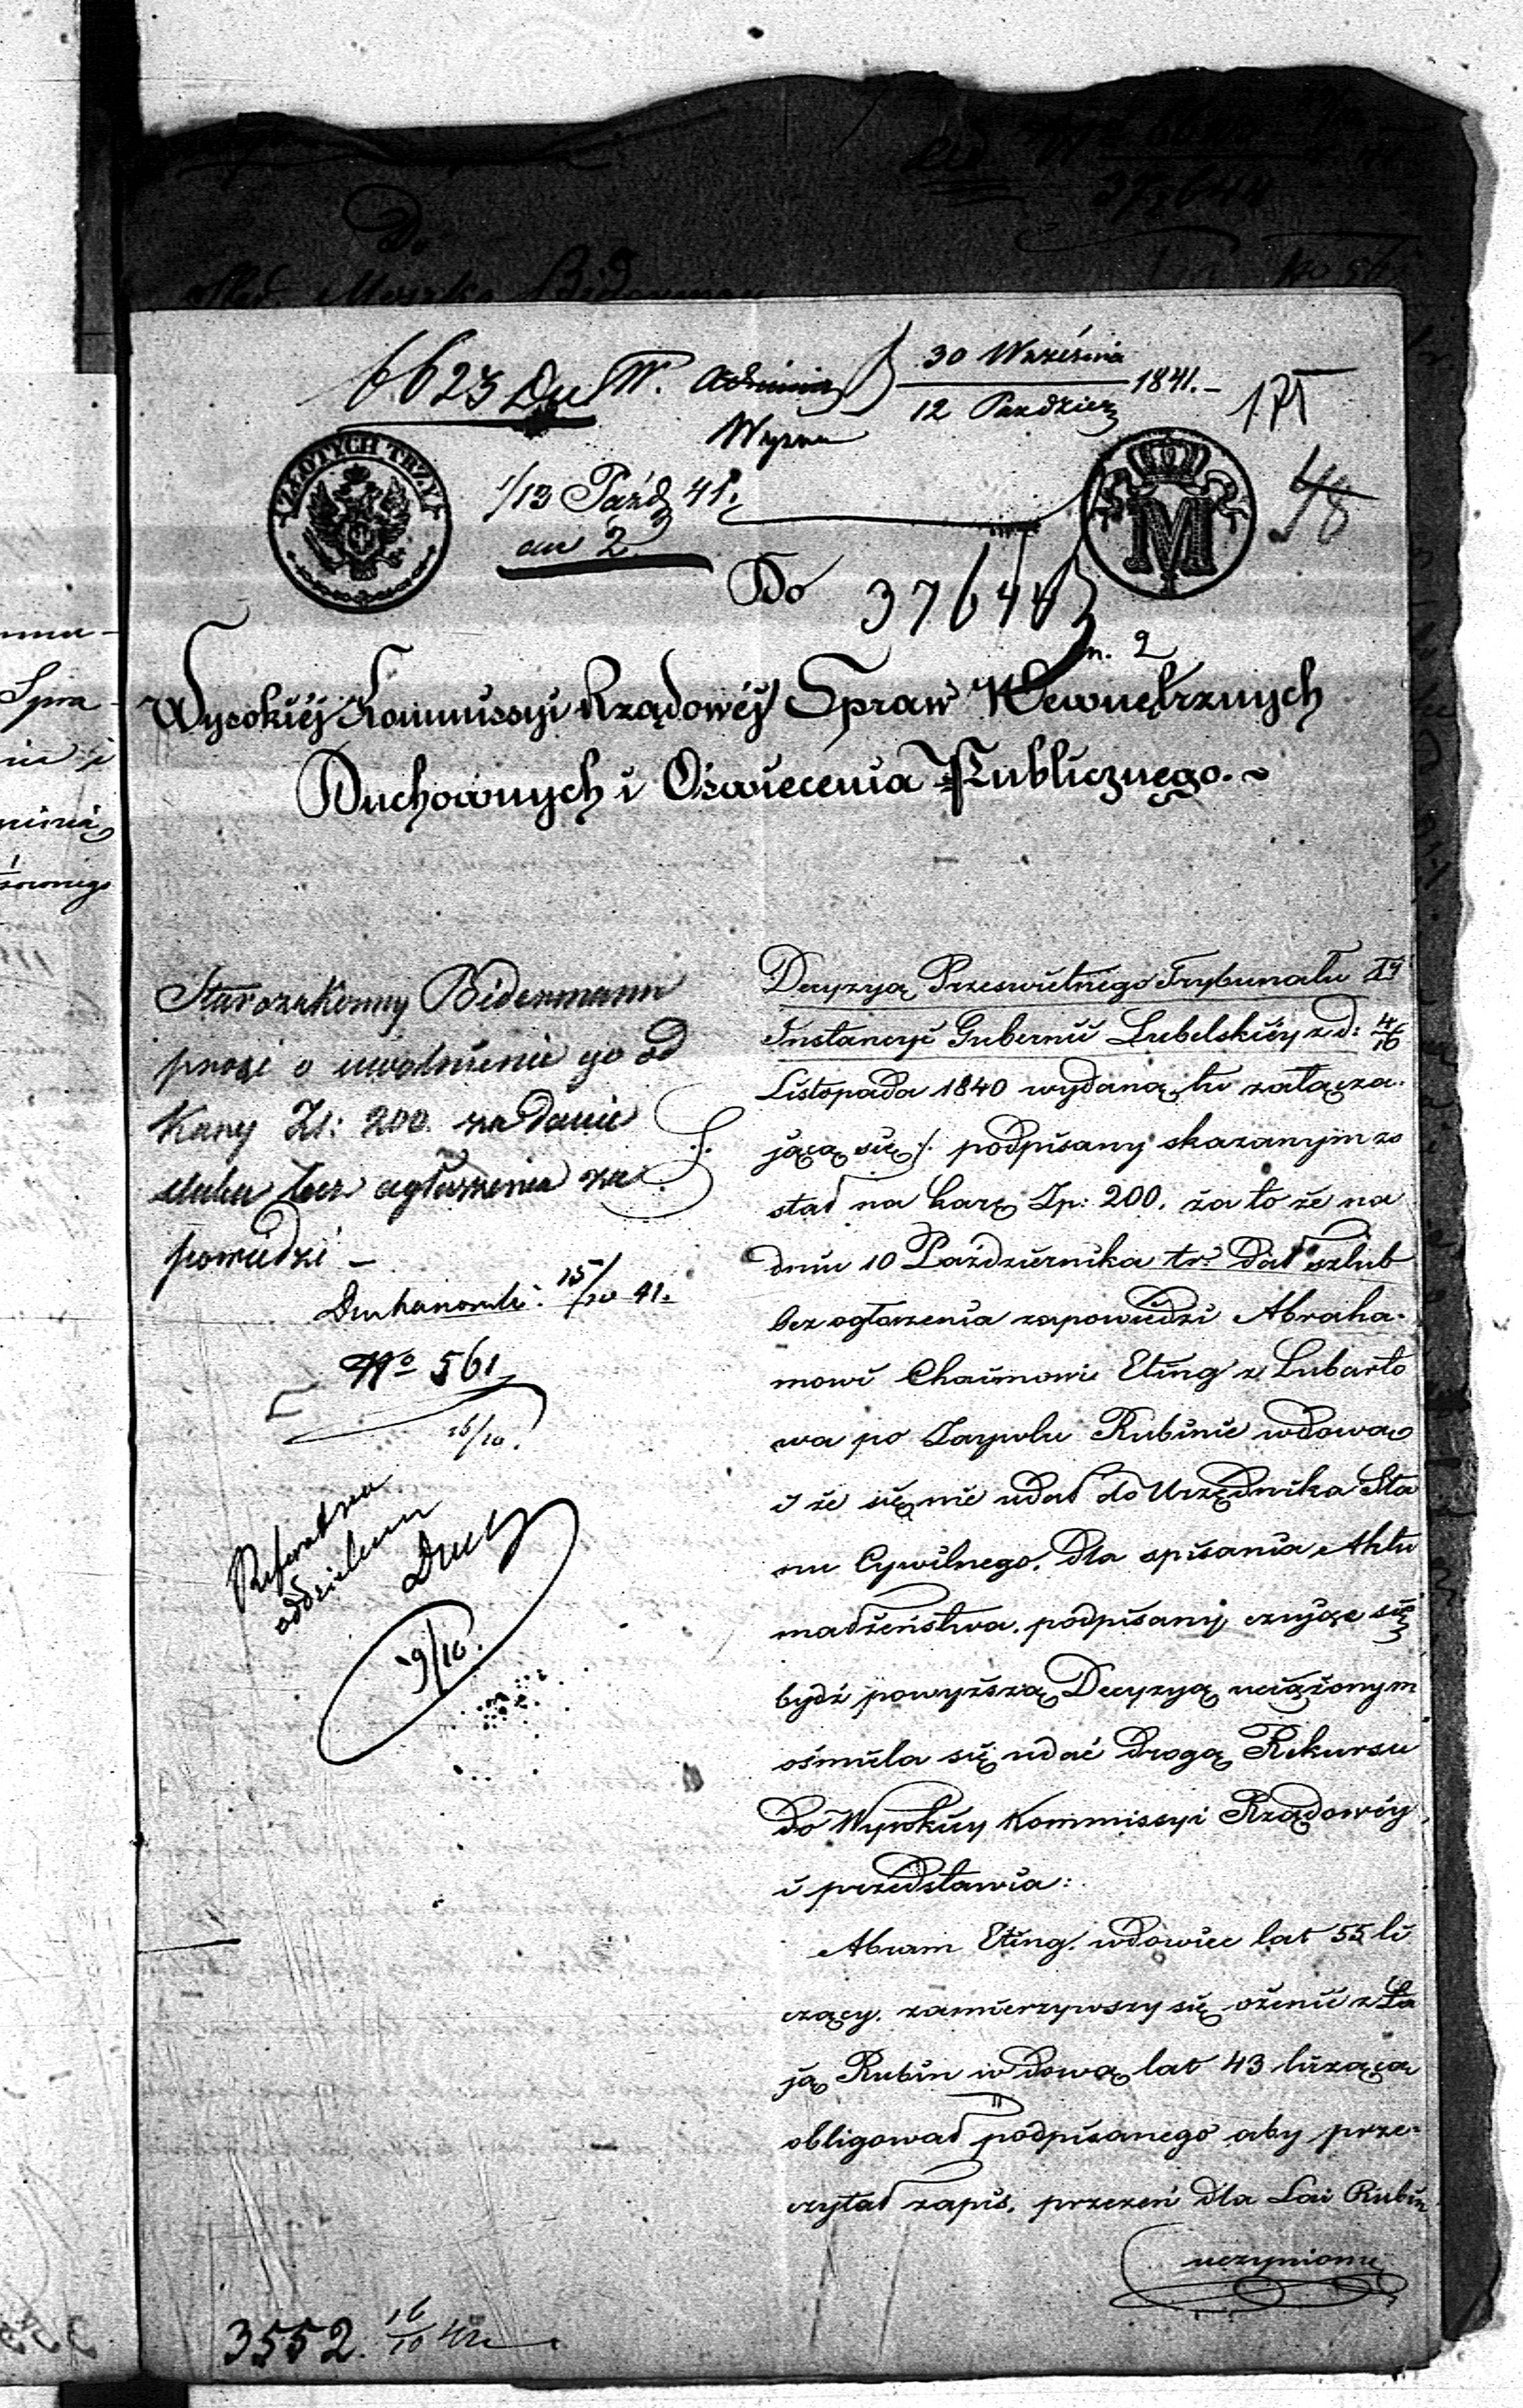 Do
Moszko Biderman
37644
6623 Du W. Adminis 30 Września
12 Paździer 1841.-
Wyzna
175
ZŁOTYCH TRZY
1/13 Paźdz 41.
an 2
M
48
Do 37644
n. 2
Wysokiéj Kommissyi Rządowéj Spraw Wewnętrznych
Duchownych i Oświecenia Publicznego.~
Starozakonny Bidermann
prosi o uwolnienie go od
Kary Zł: 200. za danie
slubu bez ogłoszenia za
powiedzi –
15/10 41.
No 561
16/10.
Referat na
oddzielnem
19/10.
Decyzyą Prześwietnego Trybunału
Instancyi Gubernii Lubelskiéy z d: 4/16
Listopada 1840 wydaną, tu załącza-
jącą się ./. podpisany skazanym zo
stał na karę Zp: 200. za to że na
dniu 10 Października tr. dał szlub
bez ogłoszenia zapowiedzi Abraha-
mowi Chaimowi Eting z Lubarto
wa po Rubinie wdową
i że się nie udał do Urzędnika Sta
nu Cywilnego, dla spisania Aktu
małżeństwa. podpisany czując się
bydź powyższą Decyzyą uciążonym
ośmiela się udać drogą Rekursu
do Wysokiey Kommissyi Rządowéy
i przedstawia:
Abram Eting. wdowiec lat 55 li
czący. zamierzywszy się ożenić z Ła
ją Rubin wdową lat 43 liczącą
obligował podpisanego aby prze-
czytał zapis, przezeń dla Łai Rubin
uczyniony
3552. 16/10 41